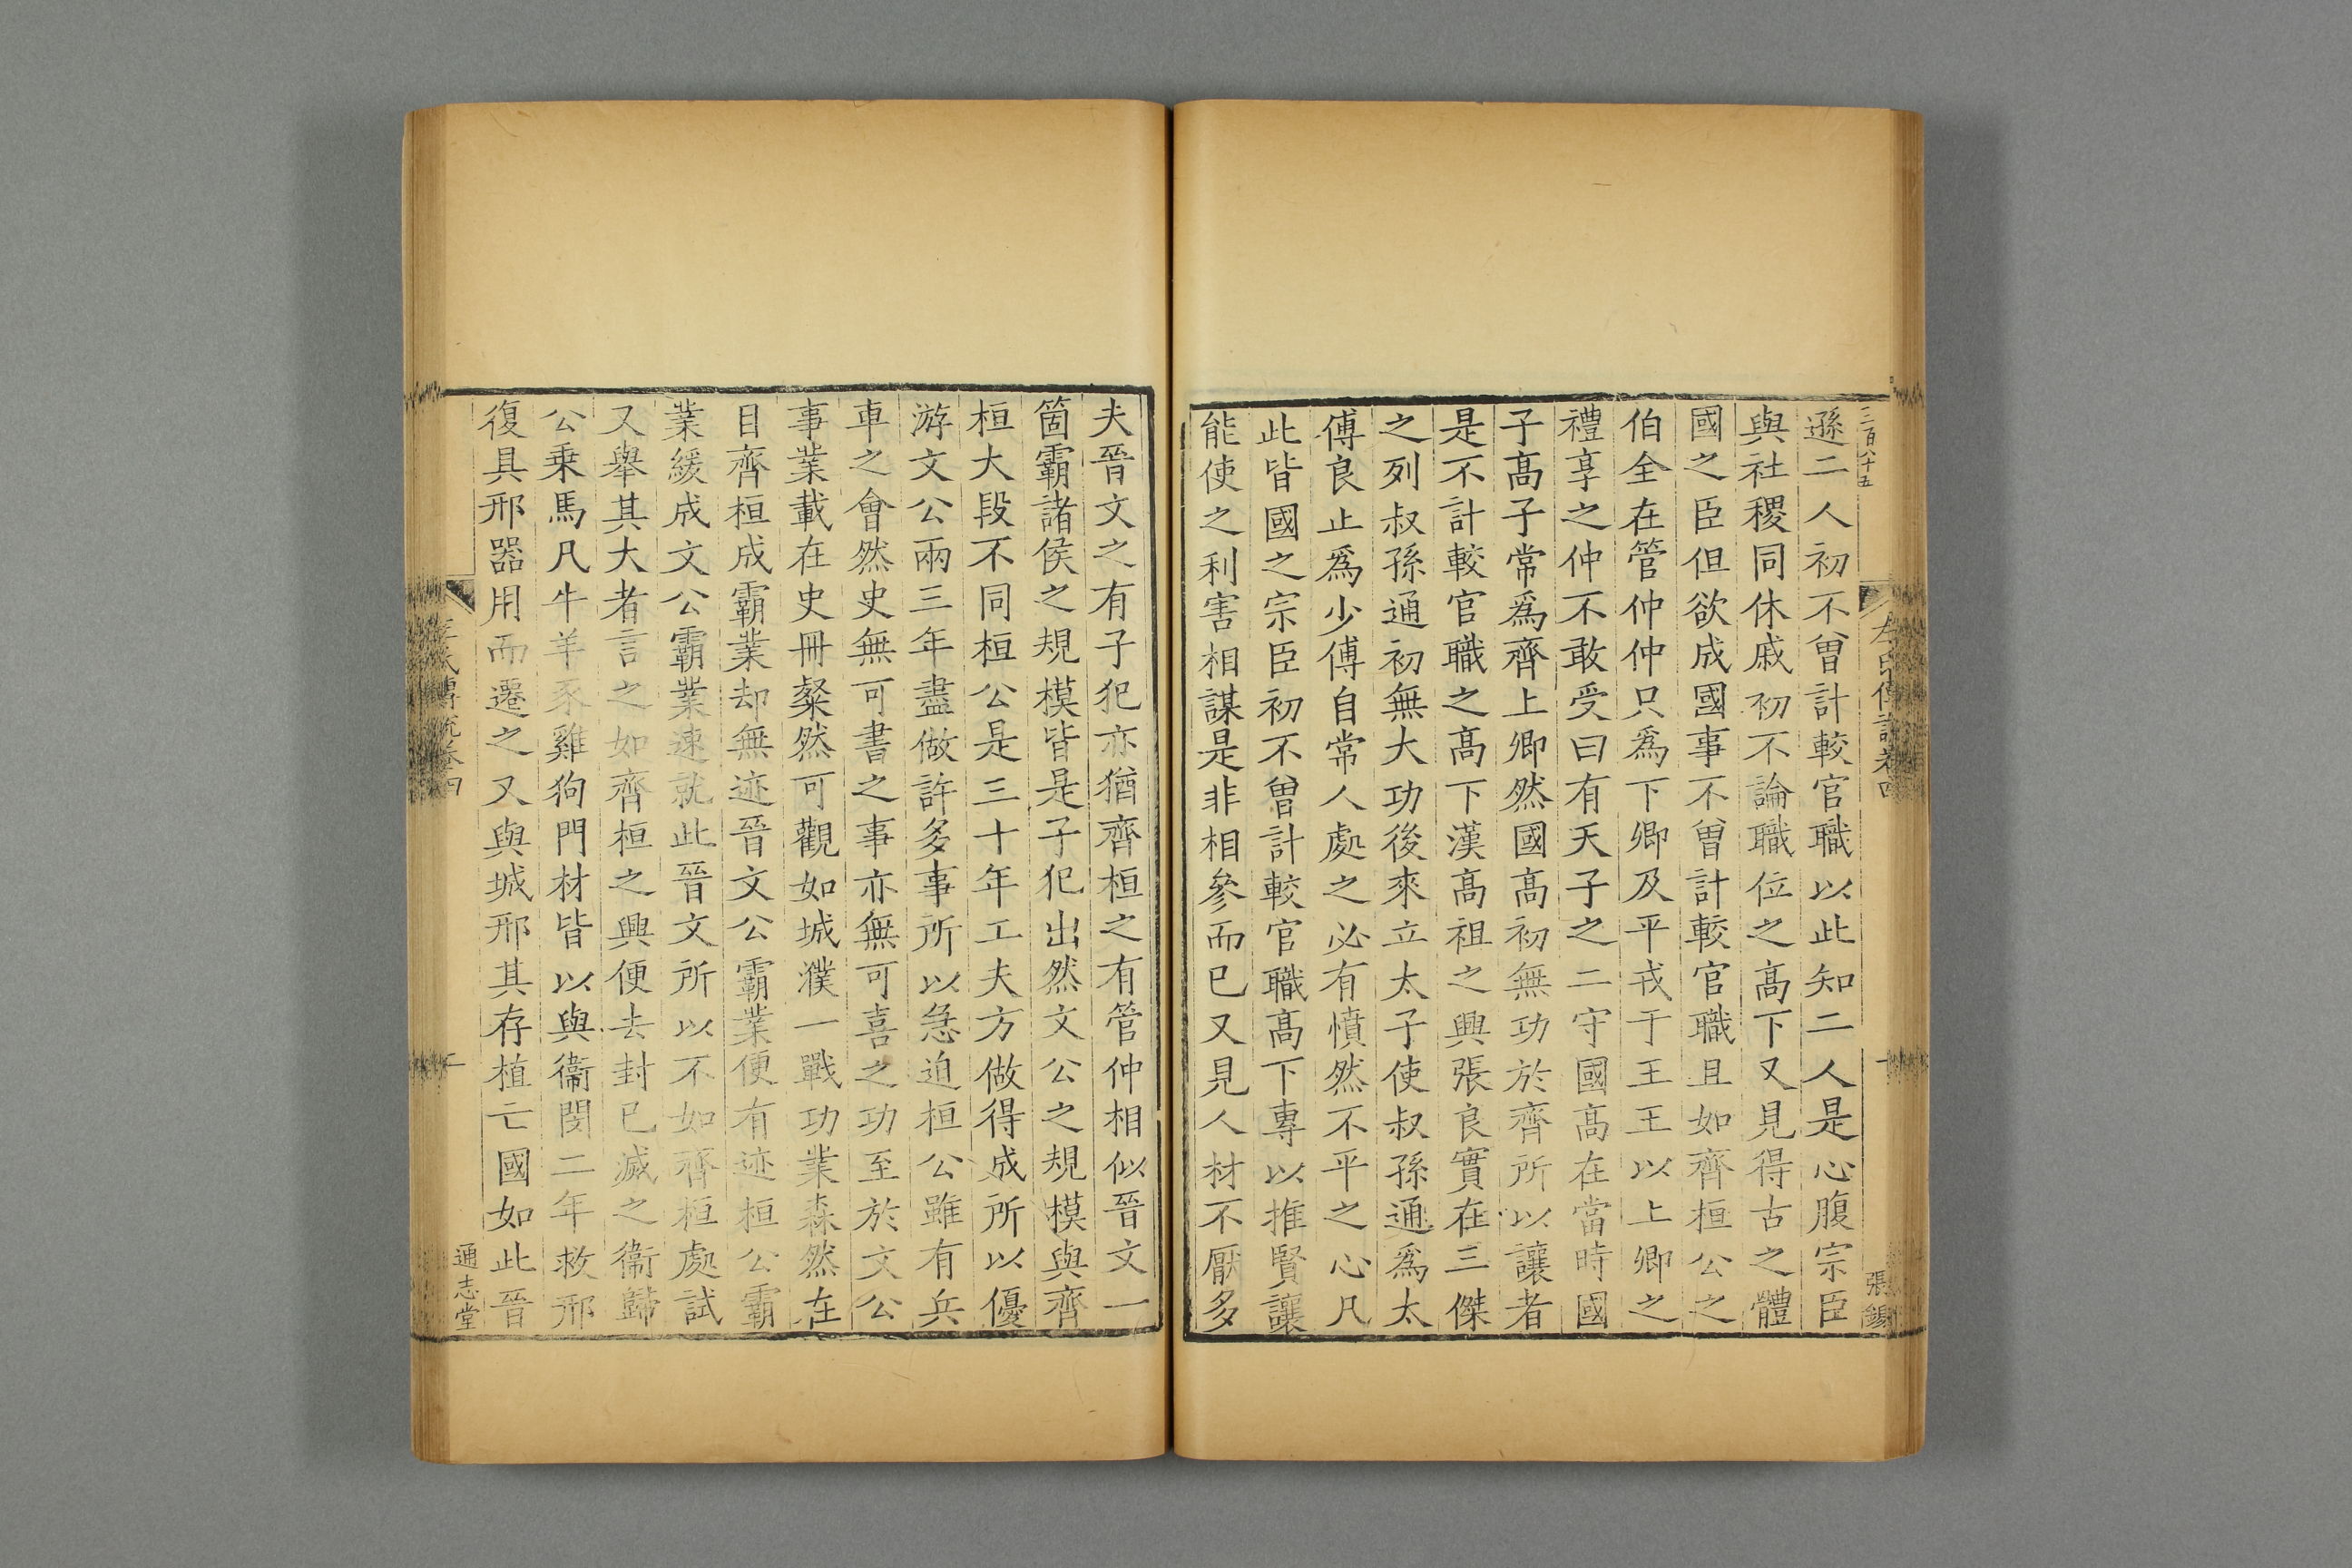 二百八十五
左氏傳說卷四
一
張錫
遜二人初不曾計較官職以此知二人是心腹宗臣
與社稷同休戚初不論職位之髙下又見得古之體
國之臣但欲成國事不曾計較官職且如齊桓公之
伯全在管仲仲只爲下卿及平戎于王王以上卿之
禮享之仲不敢受曰有天子之二守國髙在當時國
子髙子常爲齊上卿然國髙初無功於齊所以讓者
是不計較官職之髙下漢髙祖之興張良實在三傑
之列叔孫通初無大功後來立太子使叔孫通爲太
傅良止爲少傅自常人處之必有憤然不平之心凡
此皆國之宗臣初不曾計較官職髙下專以推賢讓
能使之利害相謀是非相參而已又見人材不厭多
夫晉文之有子犯亦猶齊桓之有管仲相似晉文一
箇霸諸侯之規模皆是子犯出然文公之規模與齊
桓大段不同桓公是三十年工夫方做得成所以優
游文公兩三年盡做許多事所以急迫桓公雖有兵
車之會然史無可書之事亦無可喜之功至於文公
事業載在史冊粲然可觀如城濮一戰功業森然在
目齊桓成霸業却無迹晉文公霸業便有迹桓公霸
業緩成文公霸業速就此晉文所以不如齊桓處試
又舉其大者言之如齊桓之興便去封已滅之衞歸
公乗馬凡牛羊豕雞狗門材皆以與衞閔二年救邢
復具邢器用而遷之又與城邢其存植亡國如此晉
左氏傳說卷四
二
通志堂